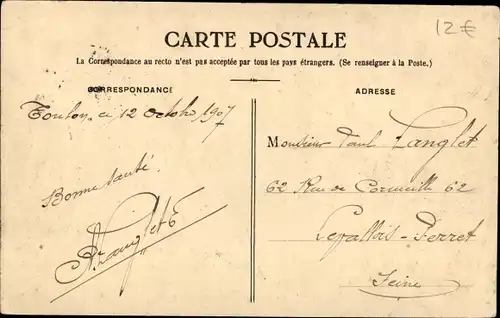 12€
CARTE POSTALE
La Correspondance au recto n'est pas acceptée par tous les pays étrangers. (Se renseigner à la Poste.)
CORRESPONDANCE
Toulon, ce 12 Octobre 1907
Bonne santé.
A. Langlet
ADRESSE
Monsieur Paul Langlet
62 Rue de Cormeille 62
Levallois-Perret
Seine